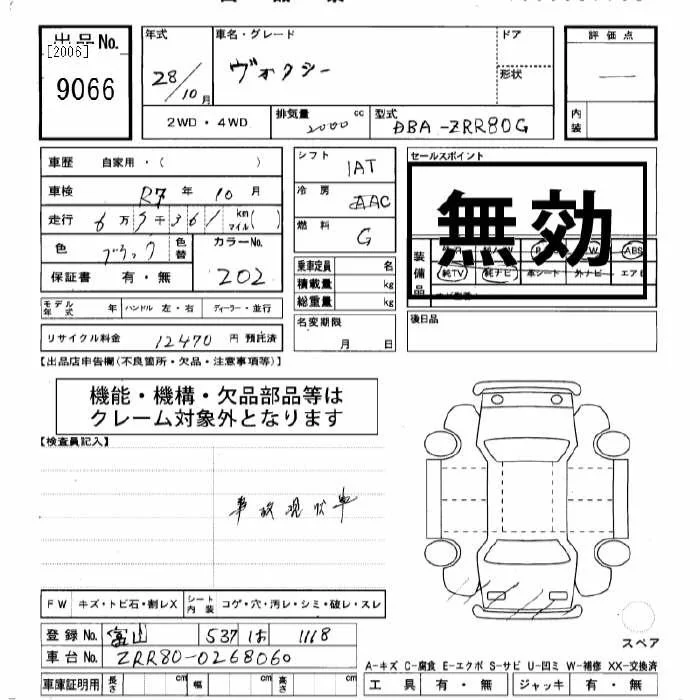 出品No.
[2006]
9066
年式
28/10月
車名・グレード
ヴォクシー
ドア
形状
評価点
—
内装
2WD・4WD
排気量 2000 cc
型式 DBA-ZRR80G
車歴 自家用・( )
車検 R7年10月
走行 6万5千361 km マイル( )
色 ブラック 色替
カラーNo. 202
保証書 有・無
シフト 1AT
冷房 AAC
燃料 G
乗車定員 名
積載量 kg
総重量 kg
セールスポイント
無効
装備品
ABS
純TV 純ナビ 本シート 外ナビ エアB
モデル年式 年 ハンドル 左・右 ディーラー・並行
リサイクル料金 12470 円 預託済
名変期限
月 日
後日品
【出品店申告欄(不良箇所・欠品・注意事項等)】
機能・機構・欠品部品等は
クレーム対象外となります
【検査員記入】
事故現状車
FW キズ・トビ石・割レX シート内装 コゲ・穴・汚レ・シミ・破レ・スレ
登録No. 富山 537 は 1168
車台No. ZRR80-0268060
車庫証明用 長さ cm 幅 cm 高さ cm
スペア
A-キズ C-腐食 E-エクボ S-サビ U-凹ミ W-補修 XX-交換済
工具 有・無 ジャッキ 有・無